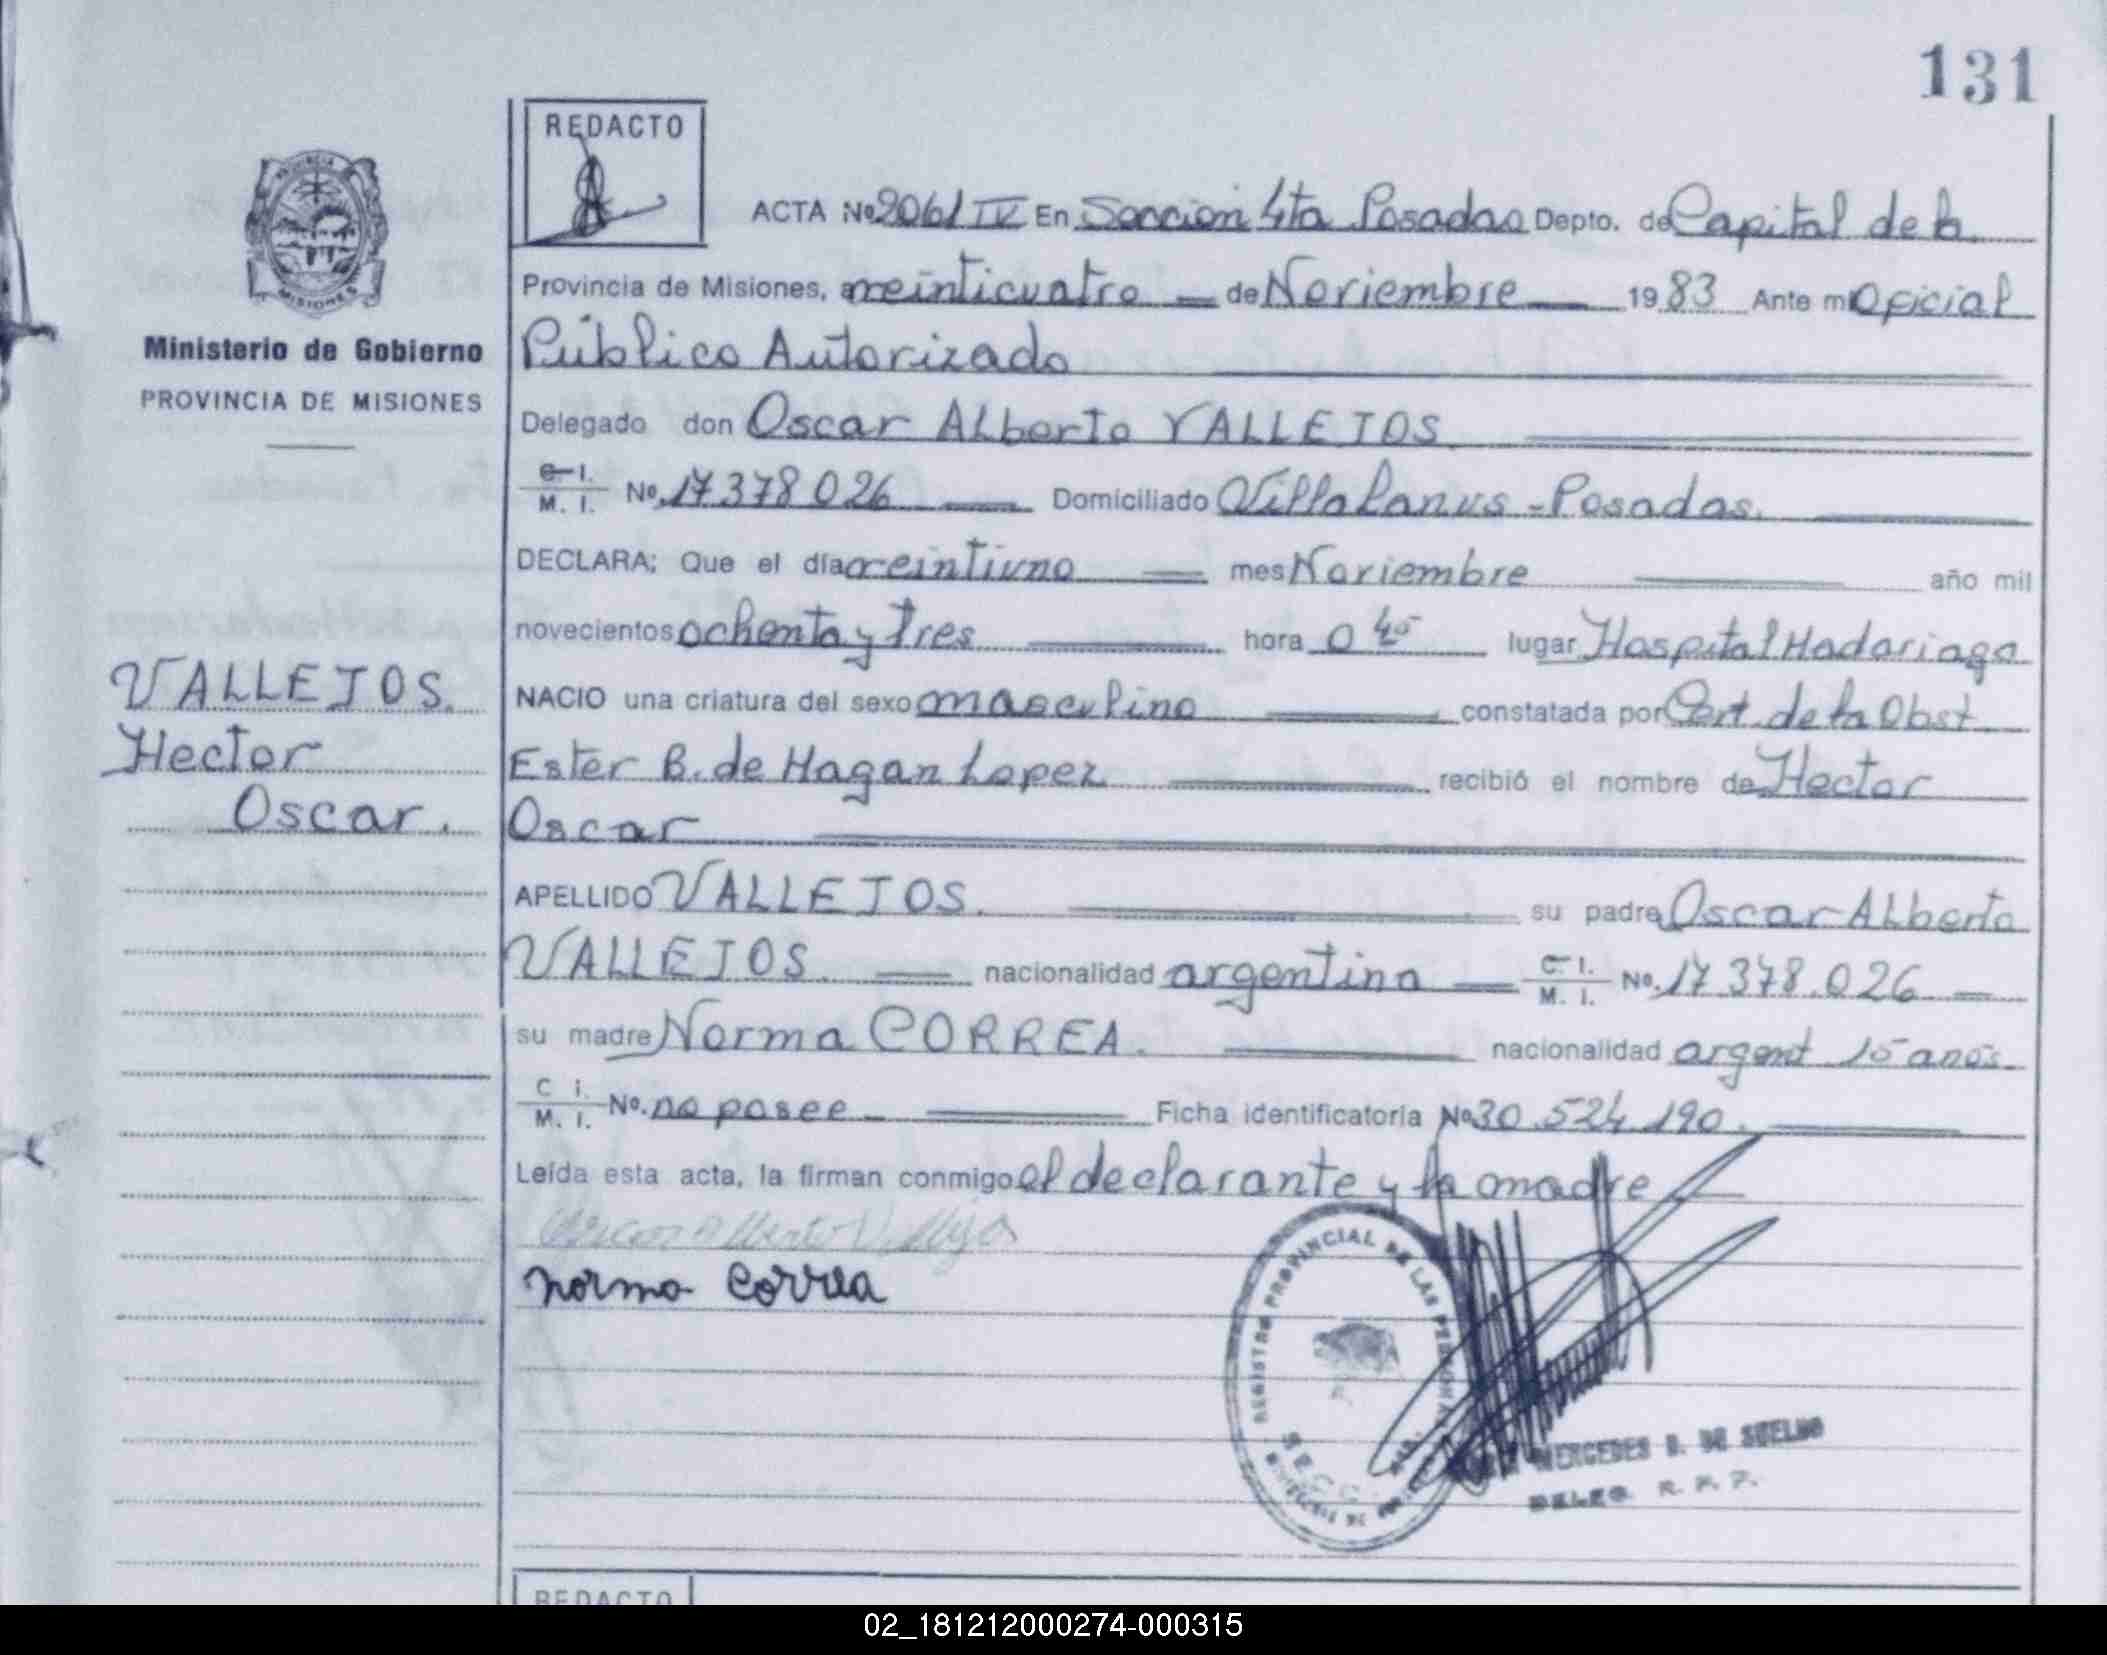 131
REDACTO
ACTA Nº 2061 IV En Seccion 4ta Posadas Depto. de Capital de la
Provincia de Misiones, a veinticuatro de Noviembre 1983 Ante mi Oficial
Público Autorizado
Delegado don Oscar Alberto VALLEJOS
C. I.
M. I. Nº 17378026 Domiciliado Villa Lanus - Posadas.
DECLARA; Que el día veintiuno mes Noviembre año mil
novecientos ochenta y tres hora 0 45 lugar Hospital Madariaga
NACIO una criatura del sexo masculino constatada por Cert. de la Obst
Ester B. de Hagan Lopez recibió el nombre de Hector
Oscar
APELLIDO VALLEJOS. su padre Oscar Alberto
VALLEJOS. nacionalidad argentina C. I.
M. I. Nº. 17.378.026
su madre Norma CORREA. nacionalidad argent 15 anos
C. I.
M. I. Nº. no posee Ficha identificatoria Nº 30.524.190.
Leída esta acta, la firman conmigo el declarante y la madre
Oscar Alberto Vallejos
Norma Correa
PROVINCIA
MISIONES
Ministerio de Gobierno
PROVINCIA DE MISIONES
VALLEJOS.
Hector
Oscar.
REGISTRO PROVINCIAL DE LAS PERSONAS
MERCEDES B. DE SUELDO
DELEG. R. P. P.
REDACTO
02_181212000274-000315